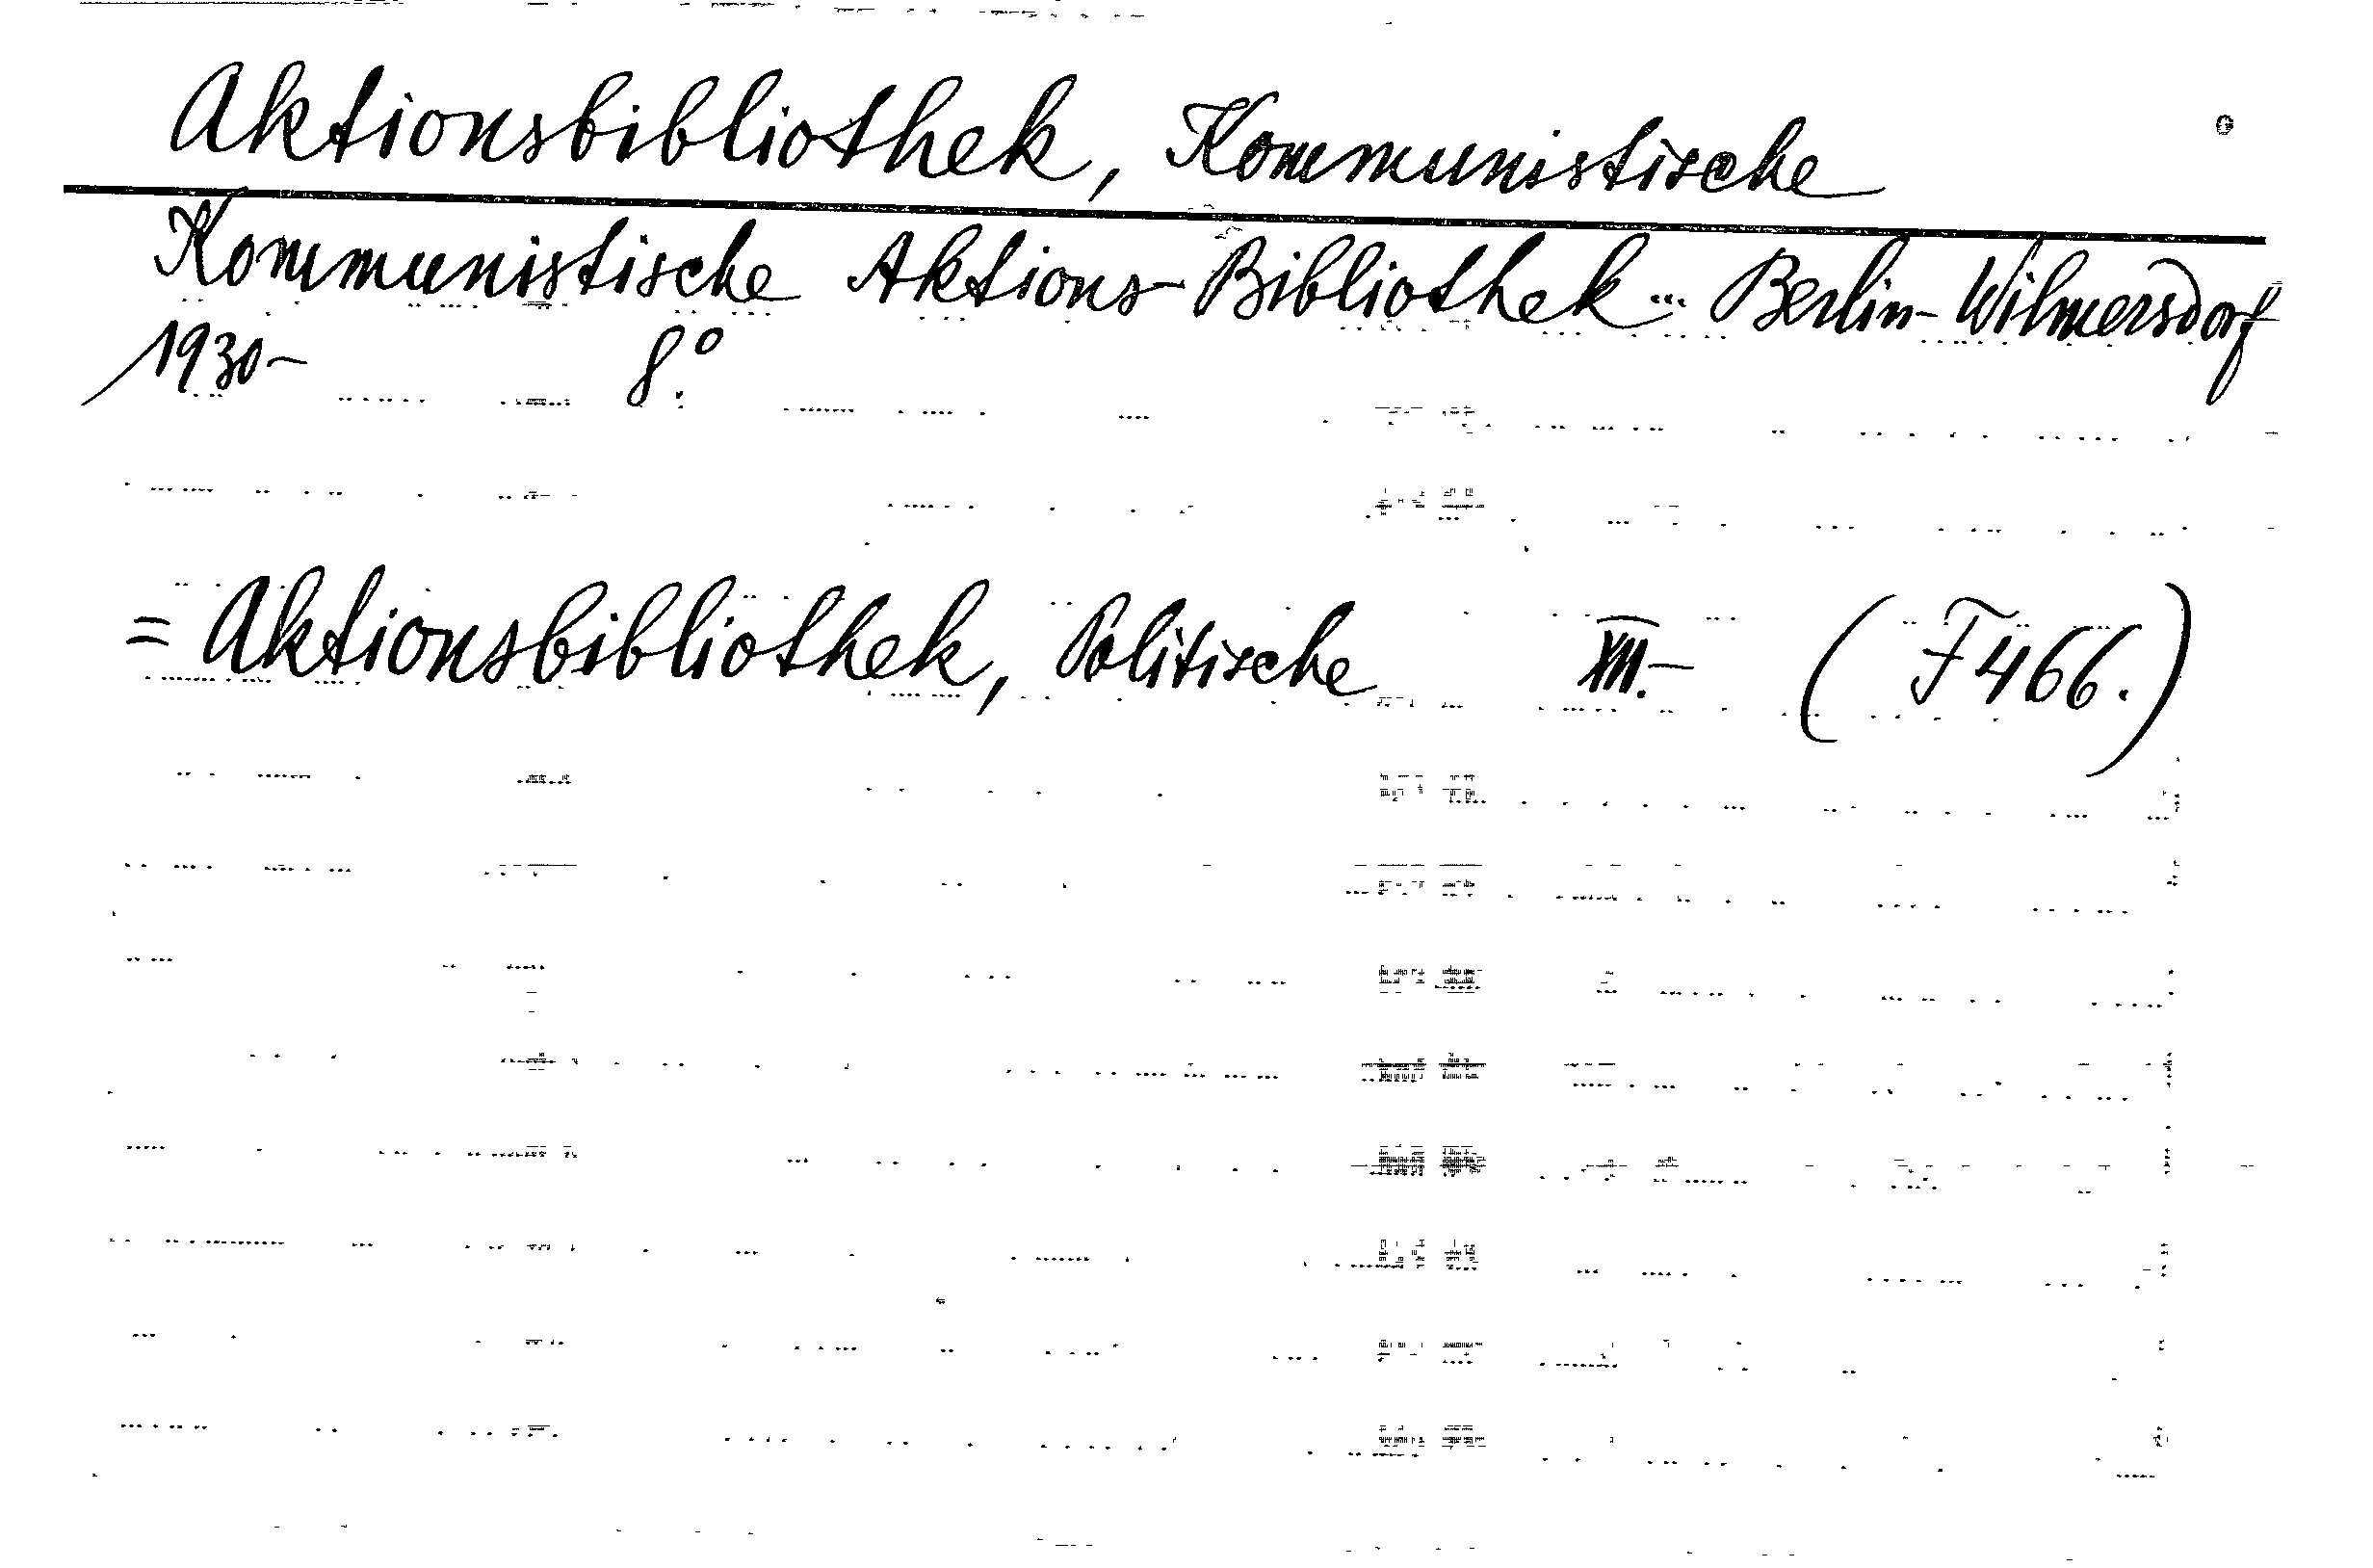 Aktionsbibliothek, Kommunistische
Kommunistische Aktions-Bibliothek... Berlin-Wilmersdorf
1930- 8.°
= Aktionsbibliothek, Politische III.- (F 466.)